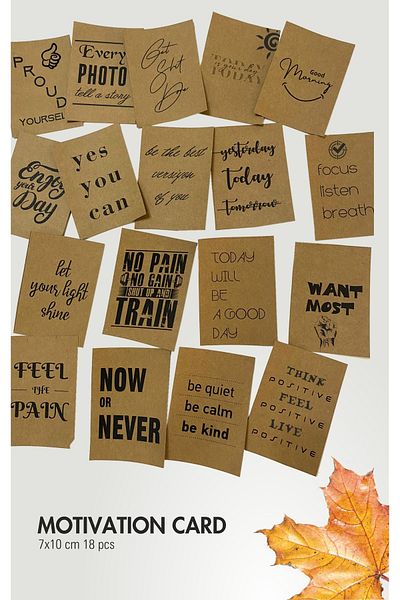 PROUD
YOURSELF
Every
PHOTO
tell a story
Get
Shit
Do
TODAY
is your day
TODAY
Good
Morning
Enjoy
your
Day
yes
you
can
be the best
version
of you
yesterday
Today
Tomorrow
focus
listen
breath
let
your light
shine
NO PAIN
NO GAIN
SHUT UP AND
TRAIN
TODAY
WILL
BE
A GOOD
DAY
WANT
MOST
FEEL
THE
PAIN
NOW
OR
NEVER
be quiet
be calm
be kind
THINK
POSITIVE
FEEL
POSITIVE
LIVE
POSITIVE
MOTIVATION CARD
7x10 cm 18 pcs